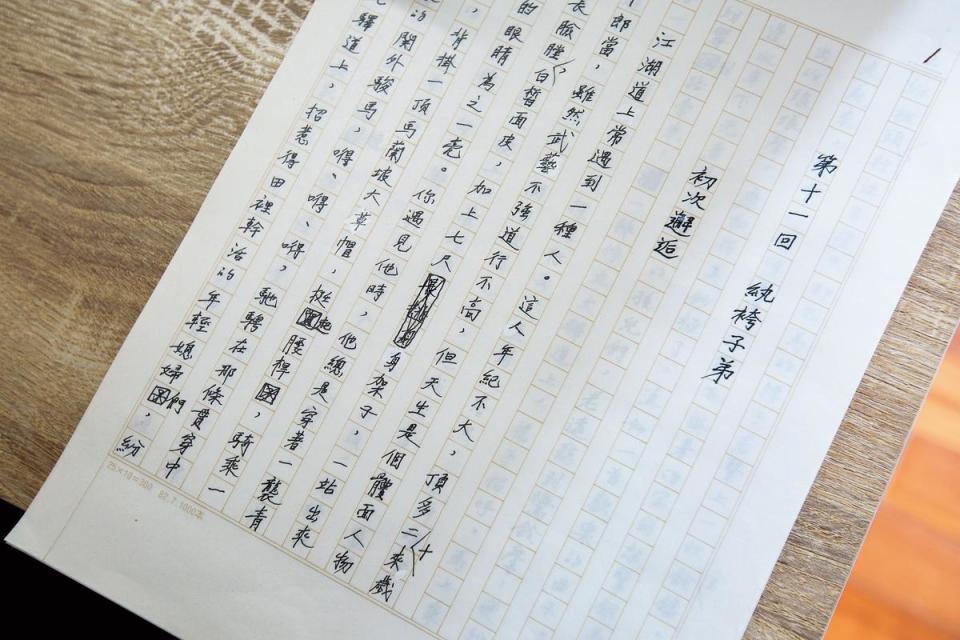 1
第十一回 紈袴子弟
初次邂逅
江湖道上常遇到一種人。這人年紀不大，頂多二十來歲
郎當，雖然武藝不強道行不高，但天生是個體面人物
長臉膛、白皙面皮，加上七尺身架子，一站出來
的眼睛為之一亮。你遇見他時，他總是穿著一襲青
，背掛一頂馬蘭坡大草帽，挺起腰桿，騎乘一
的關外駿馬，嘚、嘚、嘚，馳騁在那條貫穿中
驛道上，招惹得田裡幹活的年輕媳婦們，紛
25×12=300 82.7.1000本